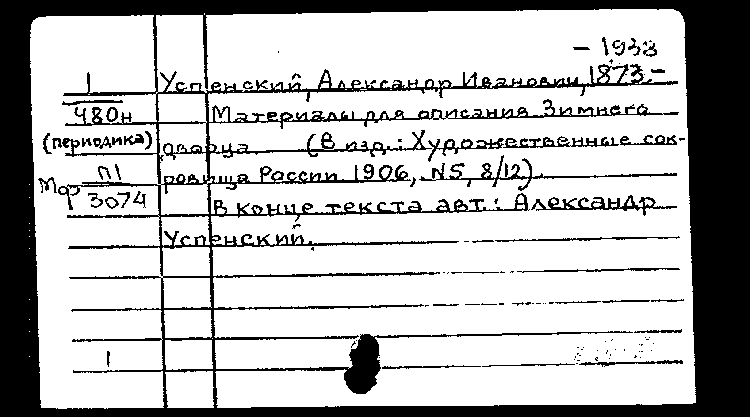 – 1938
1 Успенский, Александр Иванович, 1873.–
480н Материалы для описания Зимнего
(периодика) дворца (В изд.: Художественные сок-
Мар П1 ровища России 1906, N5, 8/12).
3074 В конце текста авт.: Александр
Успенский.
1